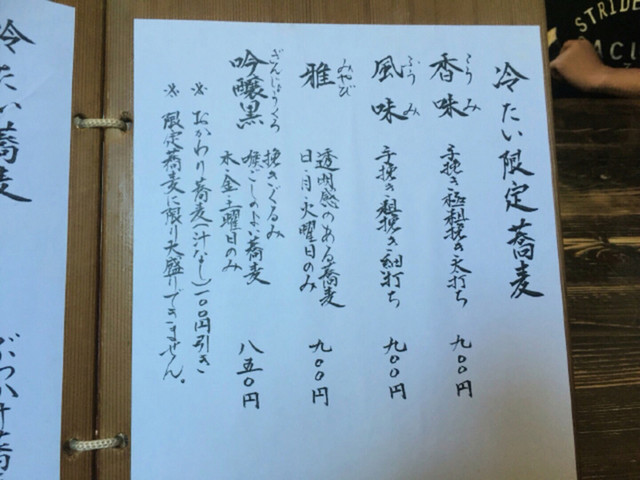 冷たい限定蕎麦
香味 こうみ
手挽き極粗挽き太打ち
九〇〇円
風味 ふうみ
手挽き粗挽き細打ち
九〇〇円
雅 みやび
透明感のある蕎麦
日・月・火曜日のみ
九〇〇円
吟醸黒 ぎんじょうくろ
挽きぐるみ
喉ごしのよい蕎麦
木・金・土曜日のみ
八五〇円
※おかわり蕎麦(汁なし)一〇〇円引き
※限定蕎麦に限り大盛りできません。
冷たい蕎麦
ぶっかけ蕎麦
STRIDE